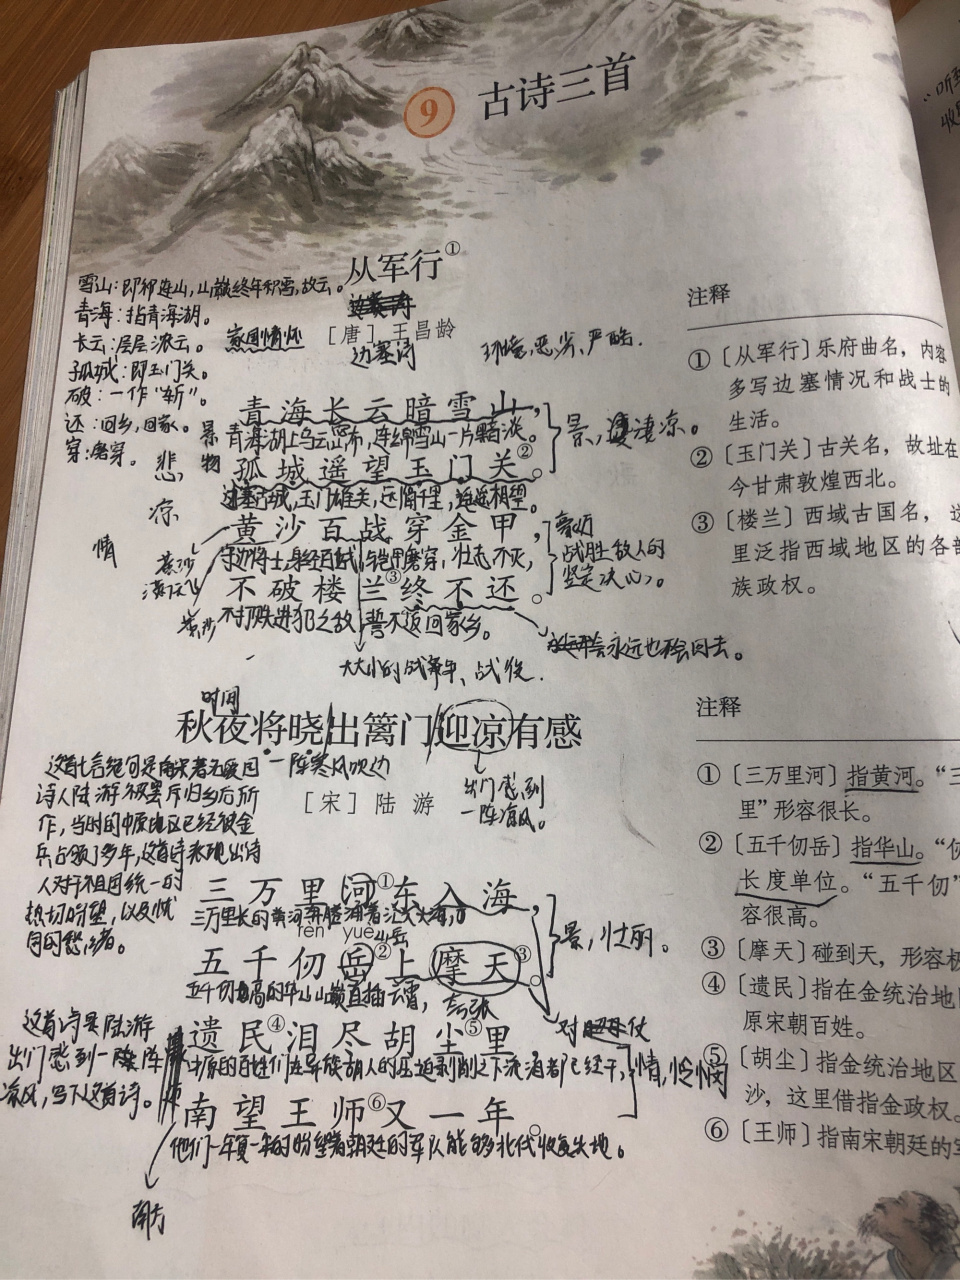 9 古诗三首
从军行①
雪山:即祁连山,山巅终年积雪,故云。
青海:指青海湖。
长云:层层浓云。
孤城:即玉门关。
破:一作“斩”。
还:回乡,回家。
穿:磨穿。
家国情怀
[唐] 王昌龄
边塞诗
环境,恶劣,严酷.
青海长云暗雪山,
景物
青海湖上乌云密布,连绵雪山一片黯淡。
景,凄凉。
孤城遥望玉门关②。
悲凉
边塞古城,玉门雄关,远隔千里,遥遥相望
黄沙百战穿金甲,
情
守边将士身经百战,铠甲磨穿,壮志不灭,
战胜敌人的
坚定决心。
黄沙
漫天飞
黄沙
不破楼兰③终不还。
不打败进犯之敌,誓不返回家乡。
永远也不会回去。
大大小小的战争、战役.
注释
①〔从军行〕乐府曲名,内容
多写边塞情况和战士的
生活。
②〔玉门关〕古关名,故址在
今甘肃敦煌西北。
③〔楼兰〕西域古国名,这
里泛指西域地区的各部
族政权。
时间
秋夜将晓出篱门迎凉有感
一阵寒风吹边
出门感到
一阵凉风。
[宋] 陆游
诗人陆游被罢斥归乡后所
作,当时的中原地区已经被金
兵占领了多年,这首诗表现出诗
人对于祖国统一的
热切盼望,以及愤
同的愁绪。
三万里河①东入海,
三万里长的黄河奔腾涌着汇入大海,
rèn yuè
山岳
五千仞岳②上摩天③。
五千仞高的华山山巅直插云霄,
夸张
景,壮丽。
对仗
这首诗是陆游
出门感到一阵
凉风,写下这首诗。
遗民④泪尽胡尘⑤里,
中原的百姓们在异族胡人的压迫剥削之下流泪都已经干,
情,怜悯
南望王师⑥又一年。
他们一年复一年的盼望着朝廷的军队能够北伐收复失地。
南方
注释
①〔三万里河〕指黄河。“三
里”形容很长。
②〔五千仞岳〕指华山。“仞
长度单位。“五千仞”
容很高。
③〔摩天〕碰到天,形容极
④〔遗民〕指在金统治地
原宋朝百姓。
⑤〔胡尘〕指金统治地区
沙,这里借指金政权。
⑥〔王师〕指南宋朝廷的